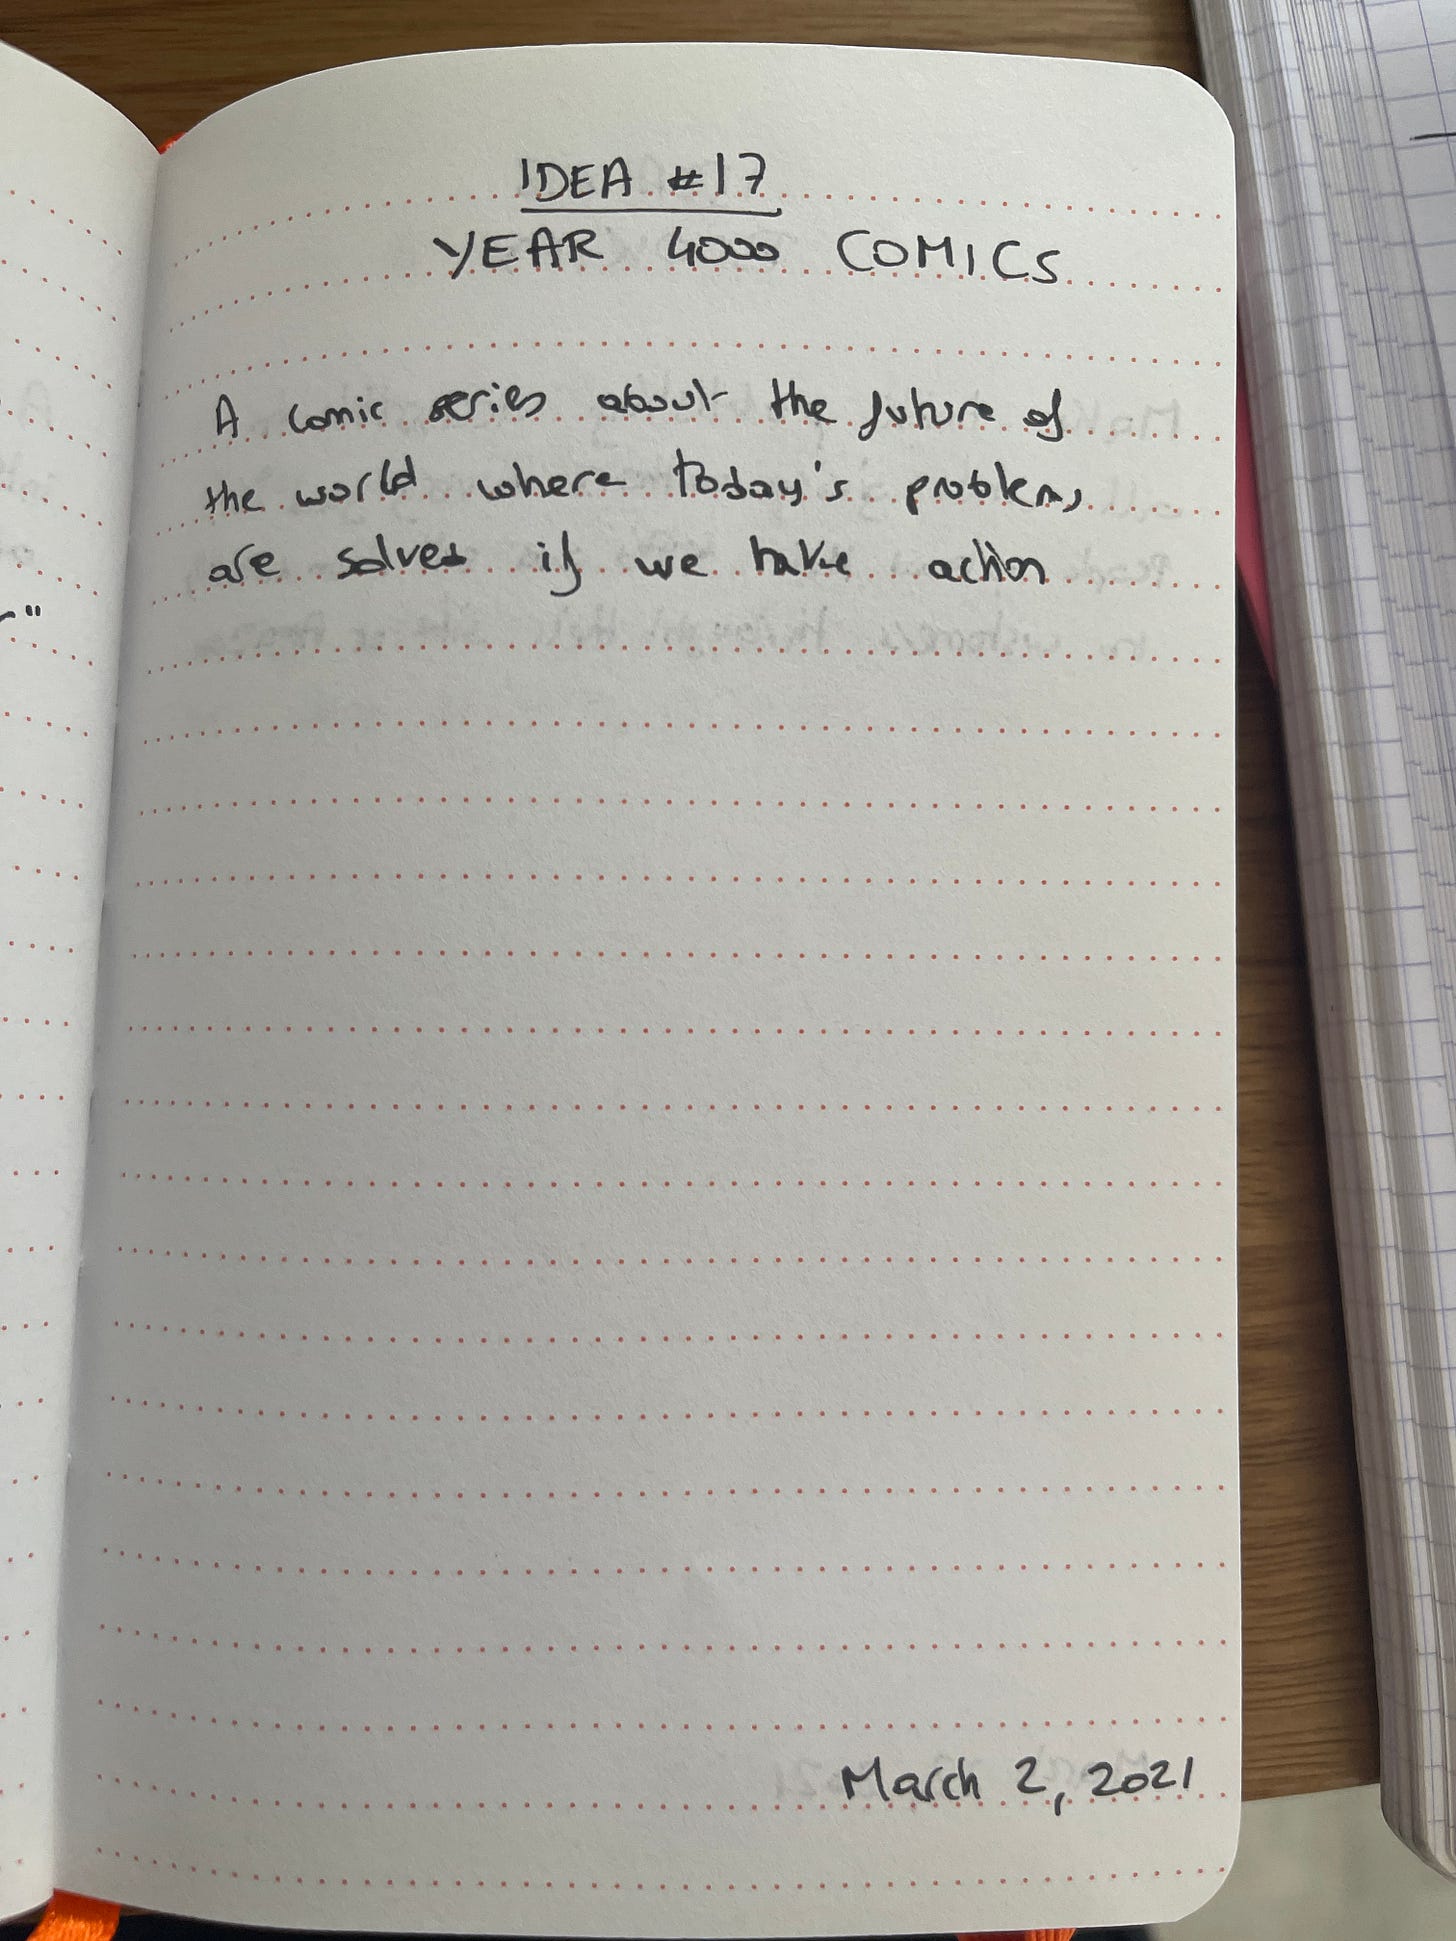 IDEA #17
YEAR 4000 COMICS
A comic series about the future of
the world where today's problems
are solved if we take action
March 2, 2021